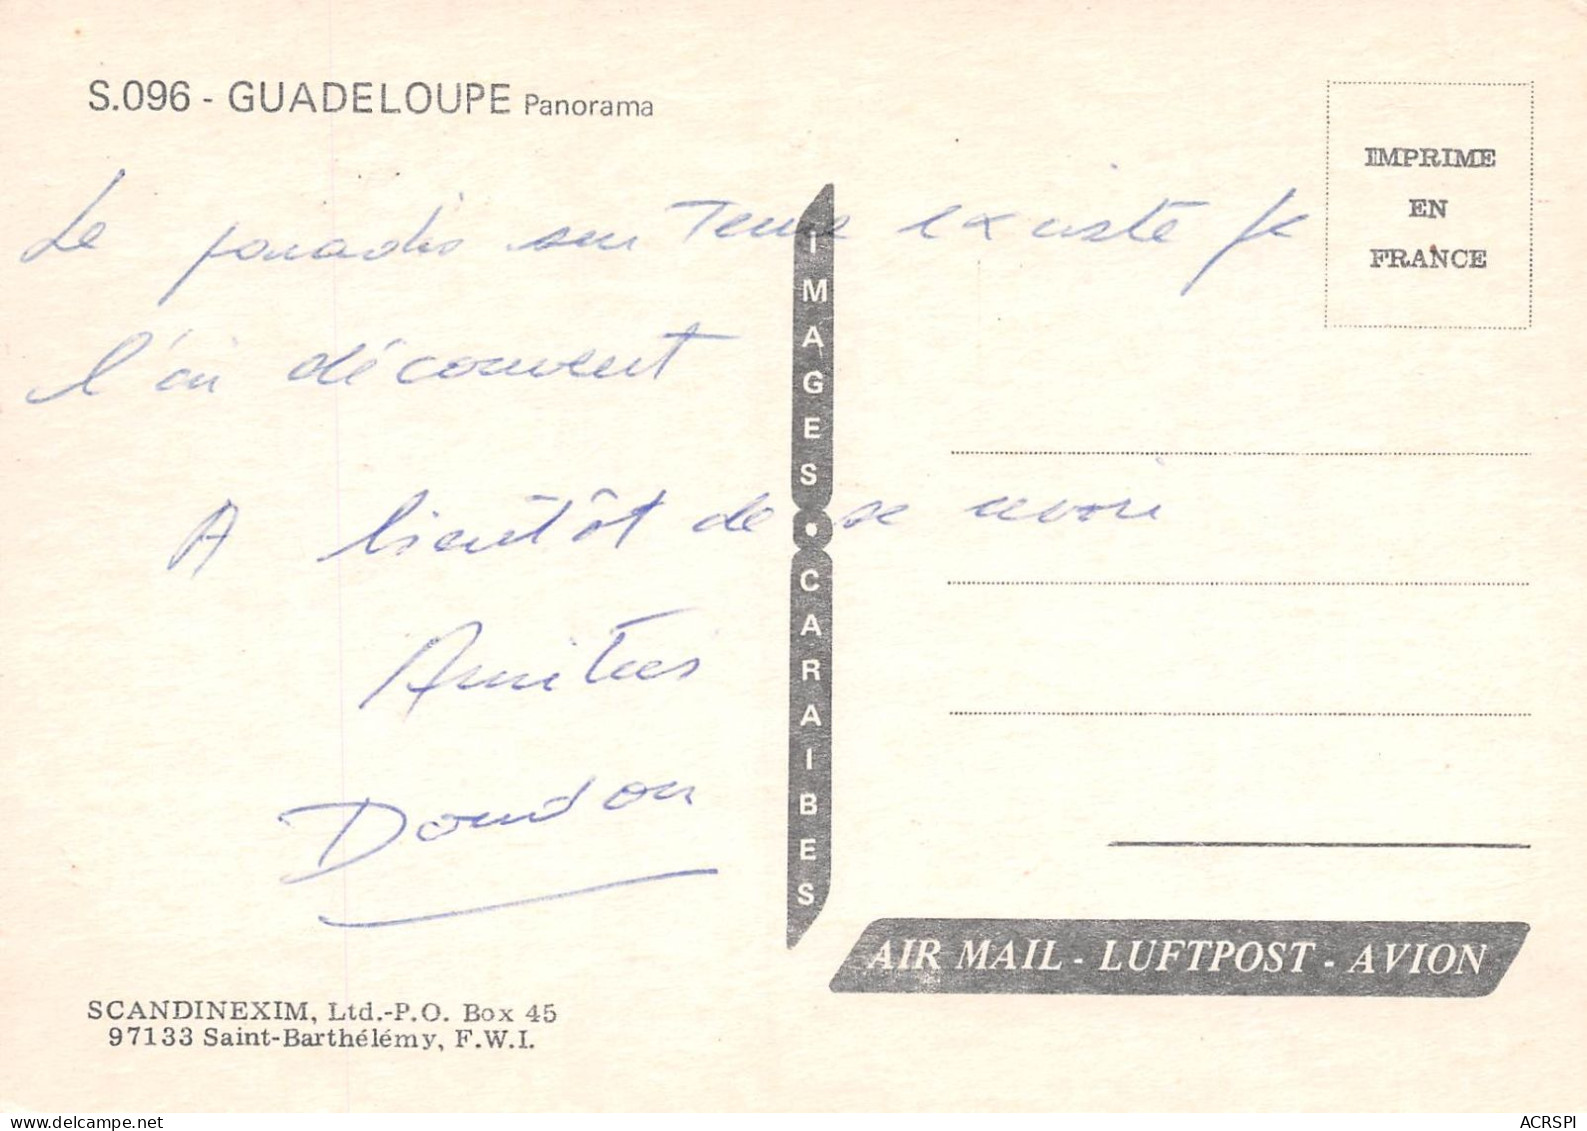 S.096 - GUADELOUPE Panorama
IMPRIME
EN
FRANCE
Le paradis sur Terre existe je
l'ai découvert
A bientôt de se revoir
Amitiés
Doudou
IMAGES CARAIBES
AIR MAIL - LUFTPOST - AVION
SCANDINEXIM, Ltd.-P.O. Box 45
97133 Saint-Barthélémy, F.W.I.
delcampe.net
ACRSPI